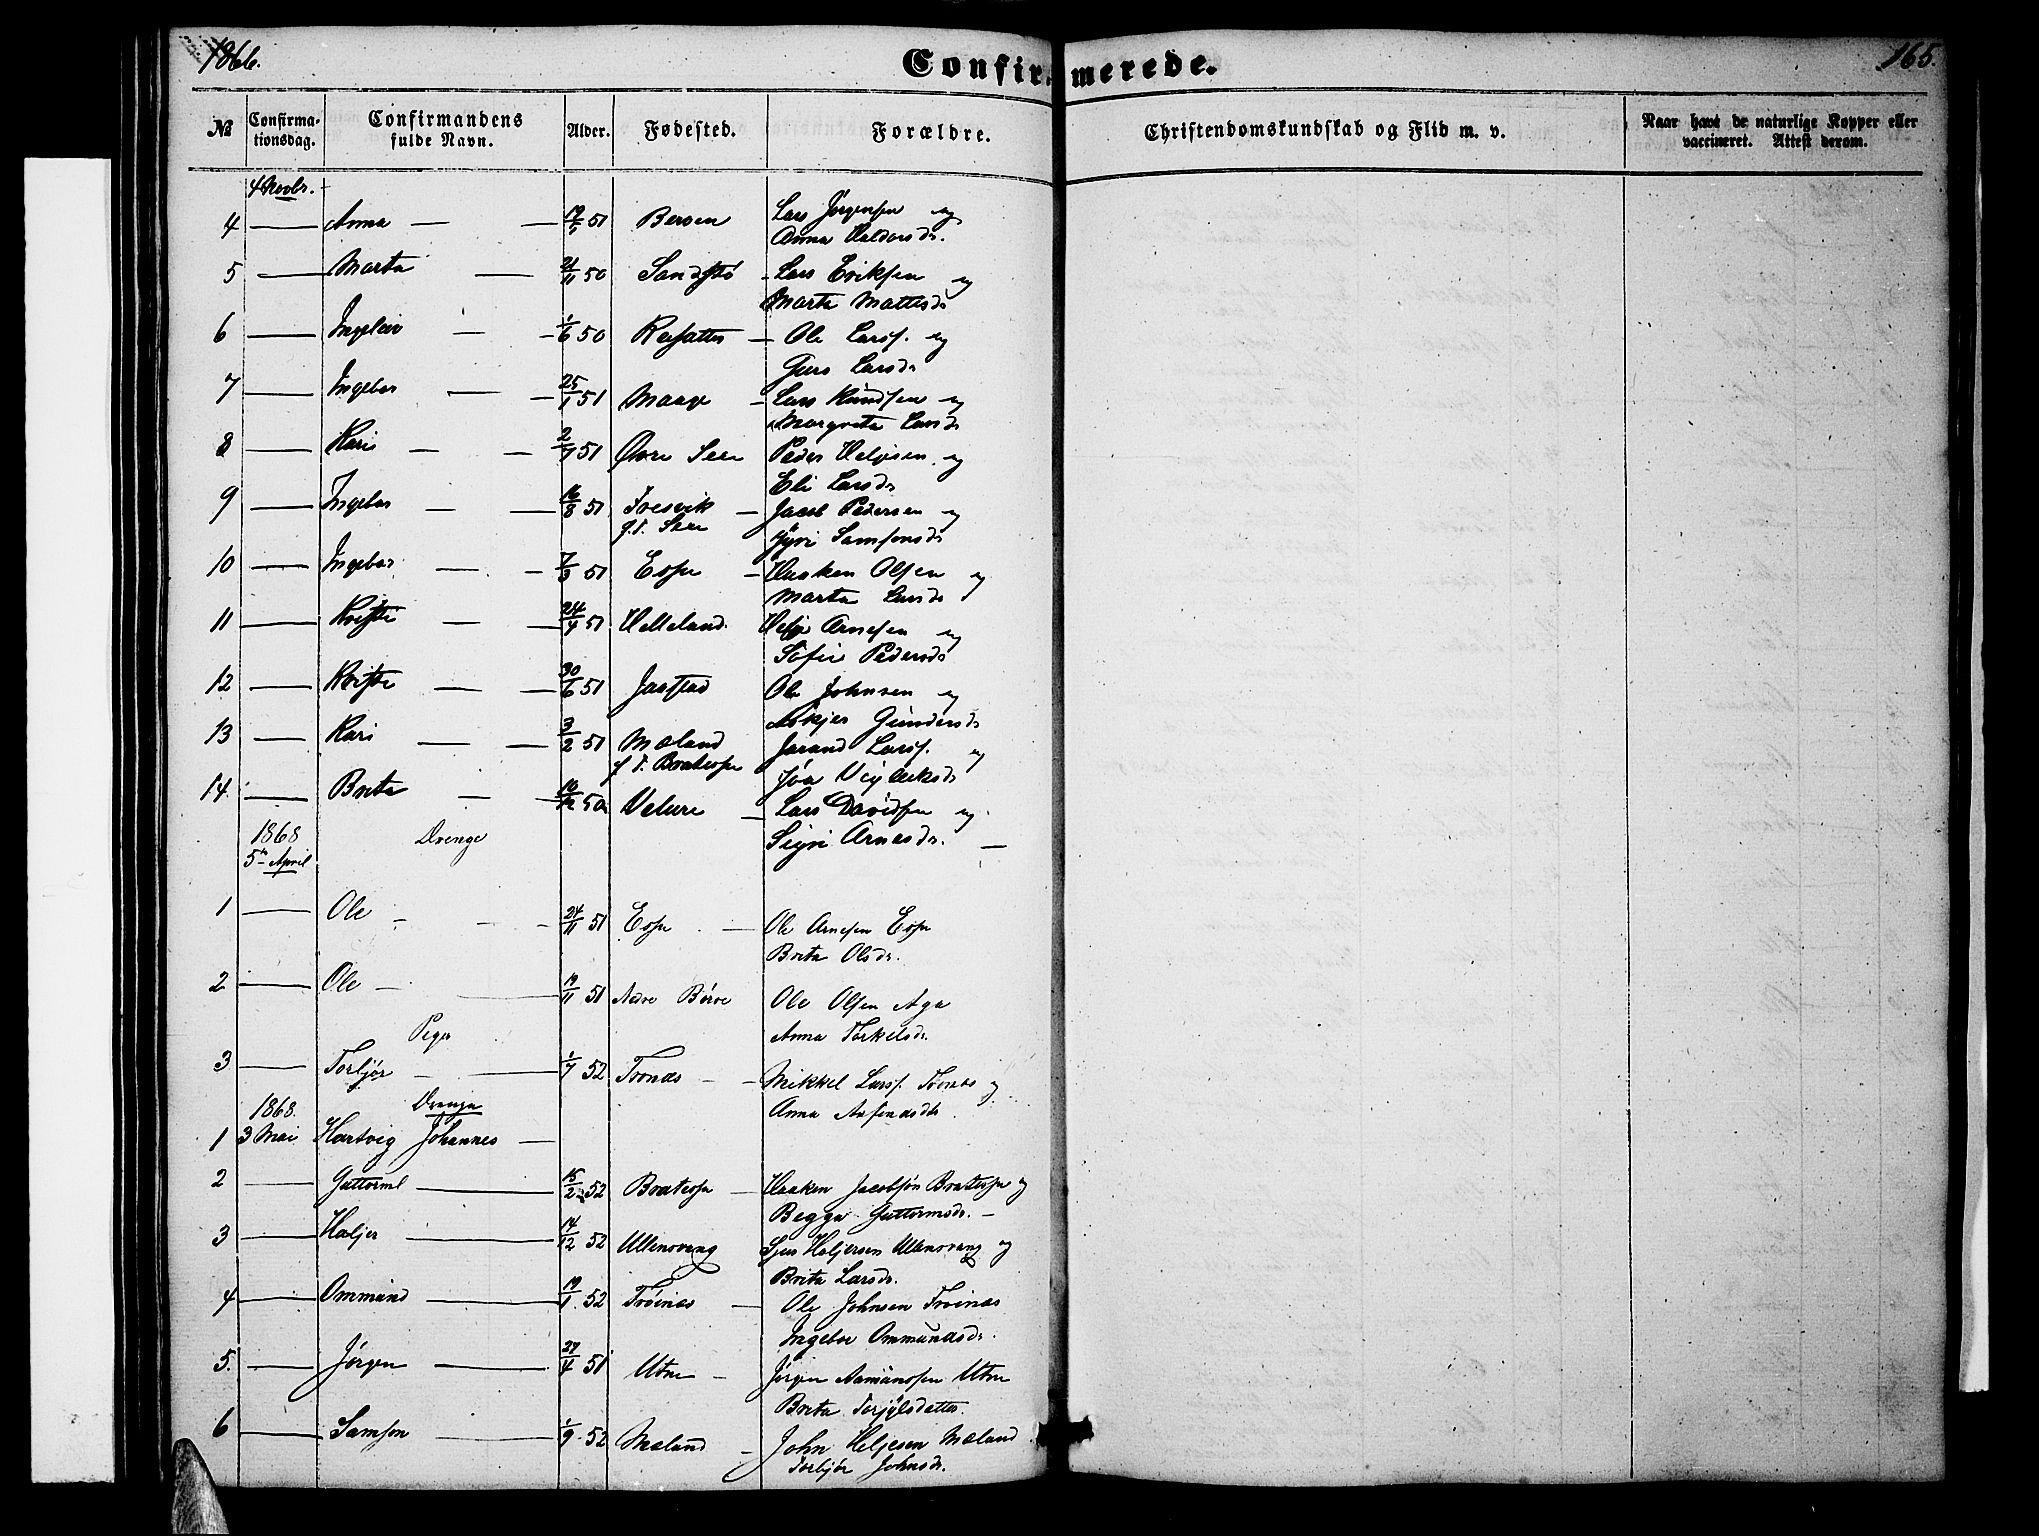 1866.
Confirmerede.
165.
№ Confirmationsdag. Confirmandens fulde Navn. Alder. Fødested. Forældre. Christendomskundskab og Flid m. v. Naar havt de naturlige Kopper eller vaccineret. Attest derom.
4 Novbr.
4 — Anna — — 51 Berven Lars Jørgensen og
Anna Haldorsdr.
5 — Marta — 21/11 50 Sandstø — Lars Eriksen og
Marta Mattesdr
6 — Ingeleiv — — 1/6 50 — Ole Larsf. og
Guro Larsdr
7 — Ingebor — — 25/1 51 Maage — Lars Knudsen og
Margreta Larsdr
8 — Kari — — 2/7 51 Øvre Seer Peder Helgesen og
Eli Larsdr
9 — Ingebor — — 16/8 51 Fresvik — Jacob Pedersen og
f. T. Seer Gyri Samsonsdr
10 — Ingebor — — 7/3 51 Espe — Haaken Olsen og
Marta Larsdr
11 — Kristi — — 24/4 51 Helleland Helje Arnesen og
Sofie Pedersdr
12 — Kristi — — 30/6 51 Jaastad Ole Johnsen og
Askjer Gundersdr
13 — Kari — — 3/2 51 Mæland Jarand Larsf. og
f. T. Bratespe Joa Vigleiksdr
14. — Brita — — 10/12 50 Velure — Lars Davidsen og
Sigri Arnesdr. —
1868 Drenge
5te April
1 — Ole — — 24/11 51 Espe — Ole Arnesen Espe
Brita Olsdr.
2 — Ole — — 19/11 51 Børve Ole Olsen Aga
Anna Torkelsdr.
Piger
3 — Torbjør — — 1/7 52 Tronæs — — Mikkel Larsf. Tronæs og
Anna
1868. Drenge
1 3 Mai Hartvig Johannes —
2 — Guttorml — 15/2 52 Bratespe — Haaken Jacobsøn Bratespe og
Begga Guttormsdr. —
3 — Haljer — 14/12 52 Ullensvang Sjur Haljersen Ullensvang og
Brita Larsdr.
4 — Ommund — 19/1 52 Trøinæs — Ole Johnsen Troinæs
Ingebor Ommundsdr.
5. — Jørgen — 27/4 51 Utne — Jørgen Aamundsen Utne
Brita Torjylsdatter
6 — Samson — 1/9 52 Mæland — John Heljesen Mæland
Torbjør Johnsdr.